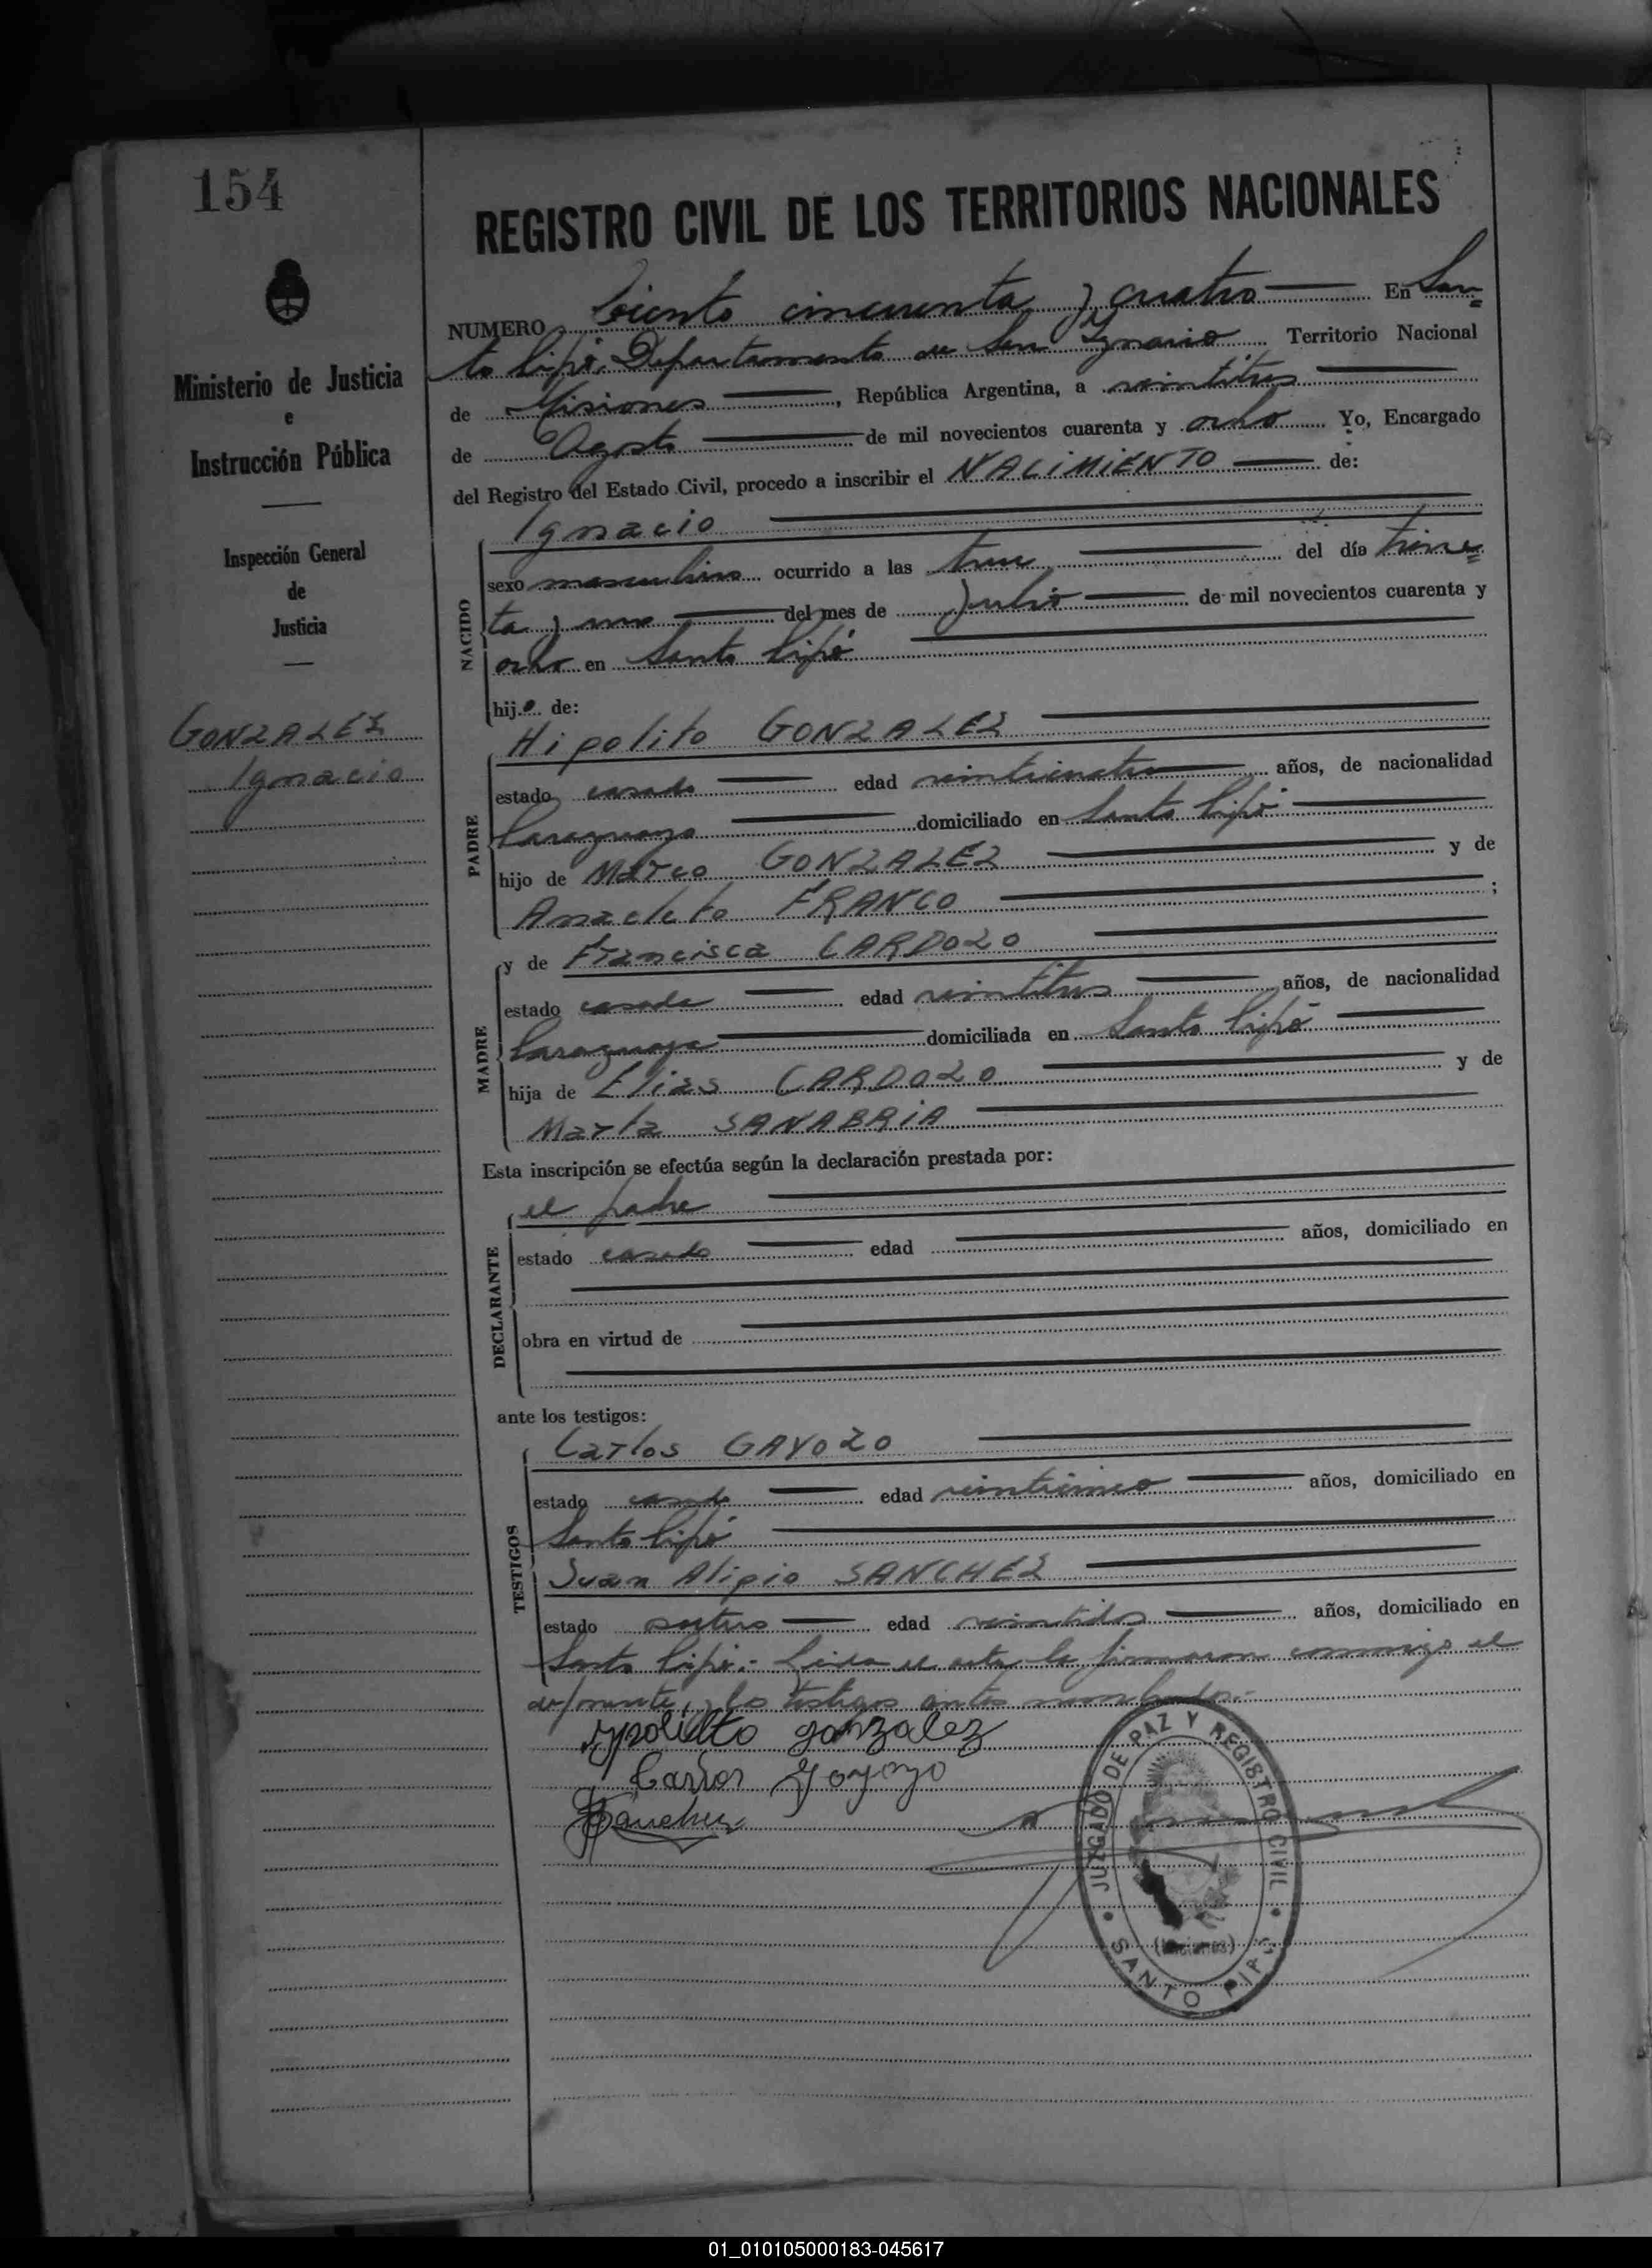 154
REGISTRO CIVIL DE LOS TERRITORIOS NACIONALES
Ministerio de Justicia
e
Instrucción Pública
Inspección General
de
Justicia
GONZALEZ
Ignacio
NUMERO Ciento cincuenta y cuatro En San=
to Pipó, Departamento de San Ygnacio Territorio Nacional
de Misiones, República Argentina, a veintitres
de Agosto de mil novecientos cuarenta y ocho Yo, Encargado
del Registro del Estado Civil, procedo a inscribir el NACIMIENTO de:
NACIDO
Ignacio
sexo masculino ocurrido a las trece del día trein=
ta y uno del mes de Julio de mil novecientos cuarenta y
ocho en Santo Pipó
hijo de:
PADRE
Hipolito GONZALEZ
estado casado edad veinticuatro años, de nacionalidad
Paraguaya domiciliado en Santo Pipó
hijo de Marco GONZALEZ y de
Anacleta FRANCO ;
MADRE
y de Francisca CARDOZO
estado casada edad veintitres años, de nacionalidad
Paraguaya domiciliada en Santo Pipó
hija de Elias CARDOZO y de
Marta SANABRIA
Esta inscripción se efectúa según la declaración prestada por:
DECLARANTE
el padre
estado casado edad años, domiciliado en
obra en virtud de
ante los testigos:
TESTIGOS
Carlos GAYOZO
estado casado edad veinticinco años, domiciliado en
Santo Pipó
Juan Alipio SANCHEZ
estado soltero edad veintidos años, domiciliado en
Santo Pipó.- Leida el acta la firmaron conmigo el
deponente, y los testigos antes nombrados.-
Ypolitto gonzalez
Carlos Gayozo
Sanchez
JUZGADO DE PAZ Y REGISTRO CIVIL
(Misiones)
SANTO PIPÓ
01_010105000183-045617